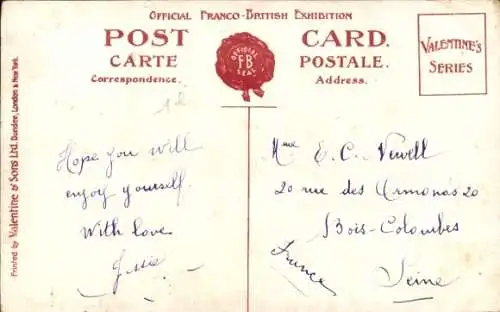 OFFICIAL FRANCO-BRITISH EXHIBITION
POST CARD.
CARTE POSTALE.
Correspondence. Address.
OFFICIAL
FB
SEAL
VALENTINE'S
SERIES
Printed by Valentine & Sons Ltd. Dundee, London & New York.
1d
Hope you will
enjoy yourself.
With love
Jessie
Mme E. C. Newell
20 rue des 20
Bois-Colombes
France
Seine